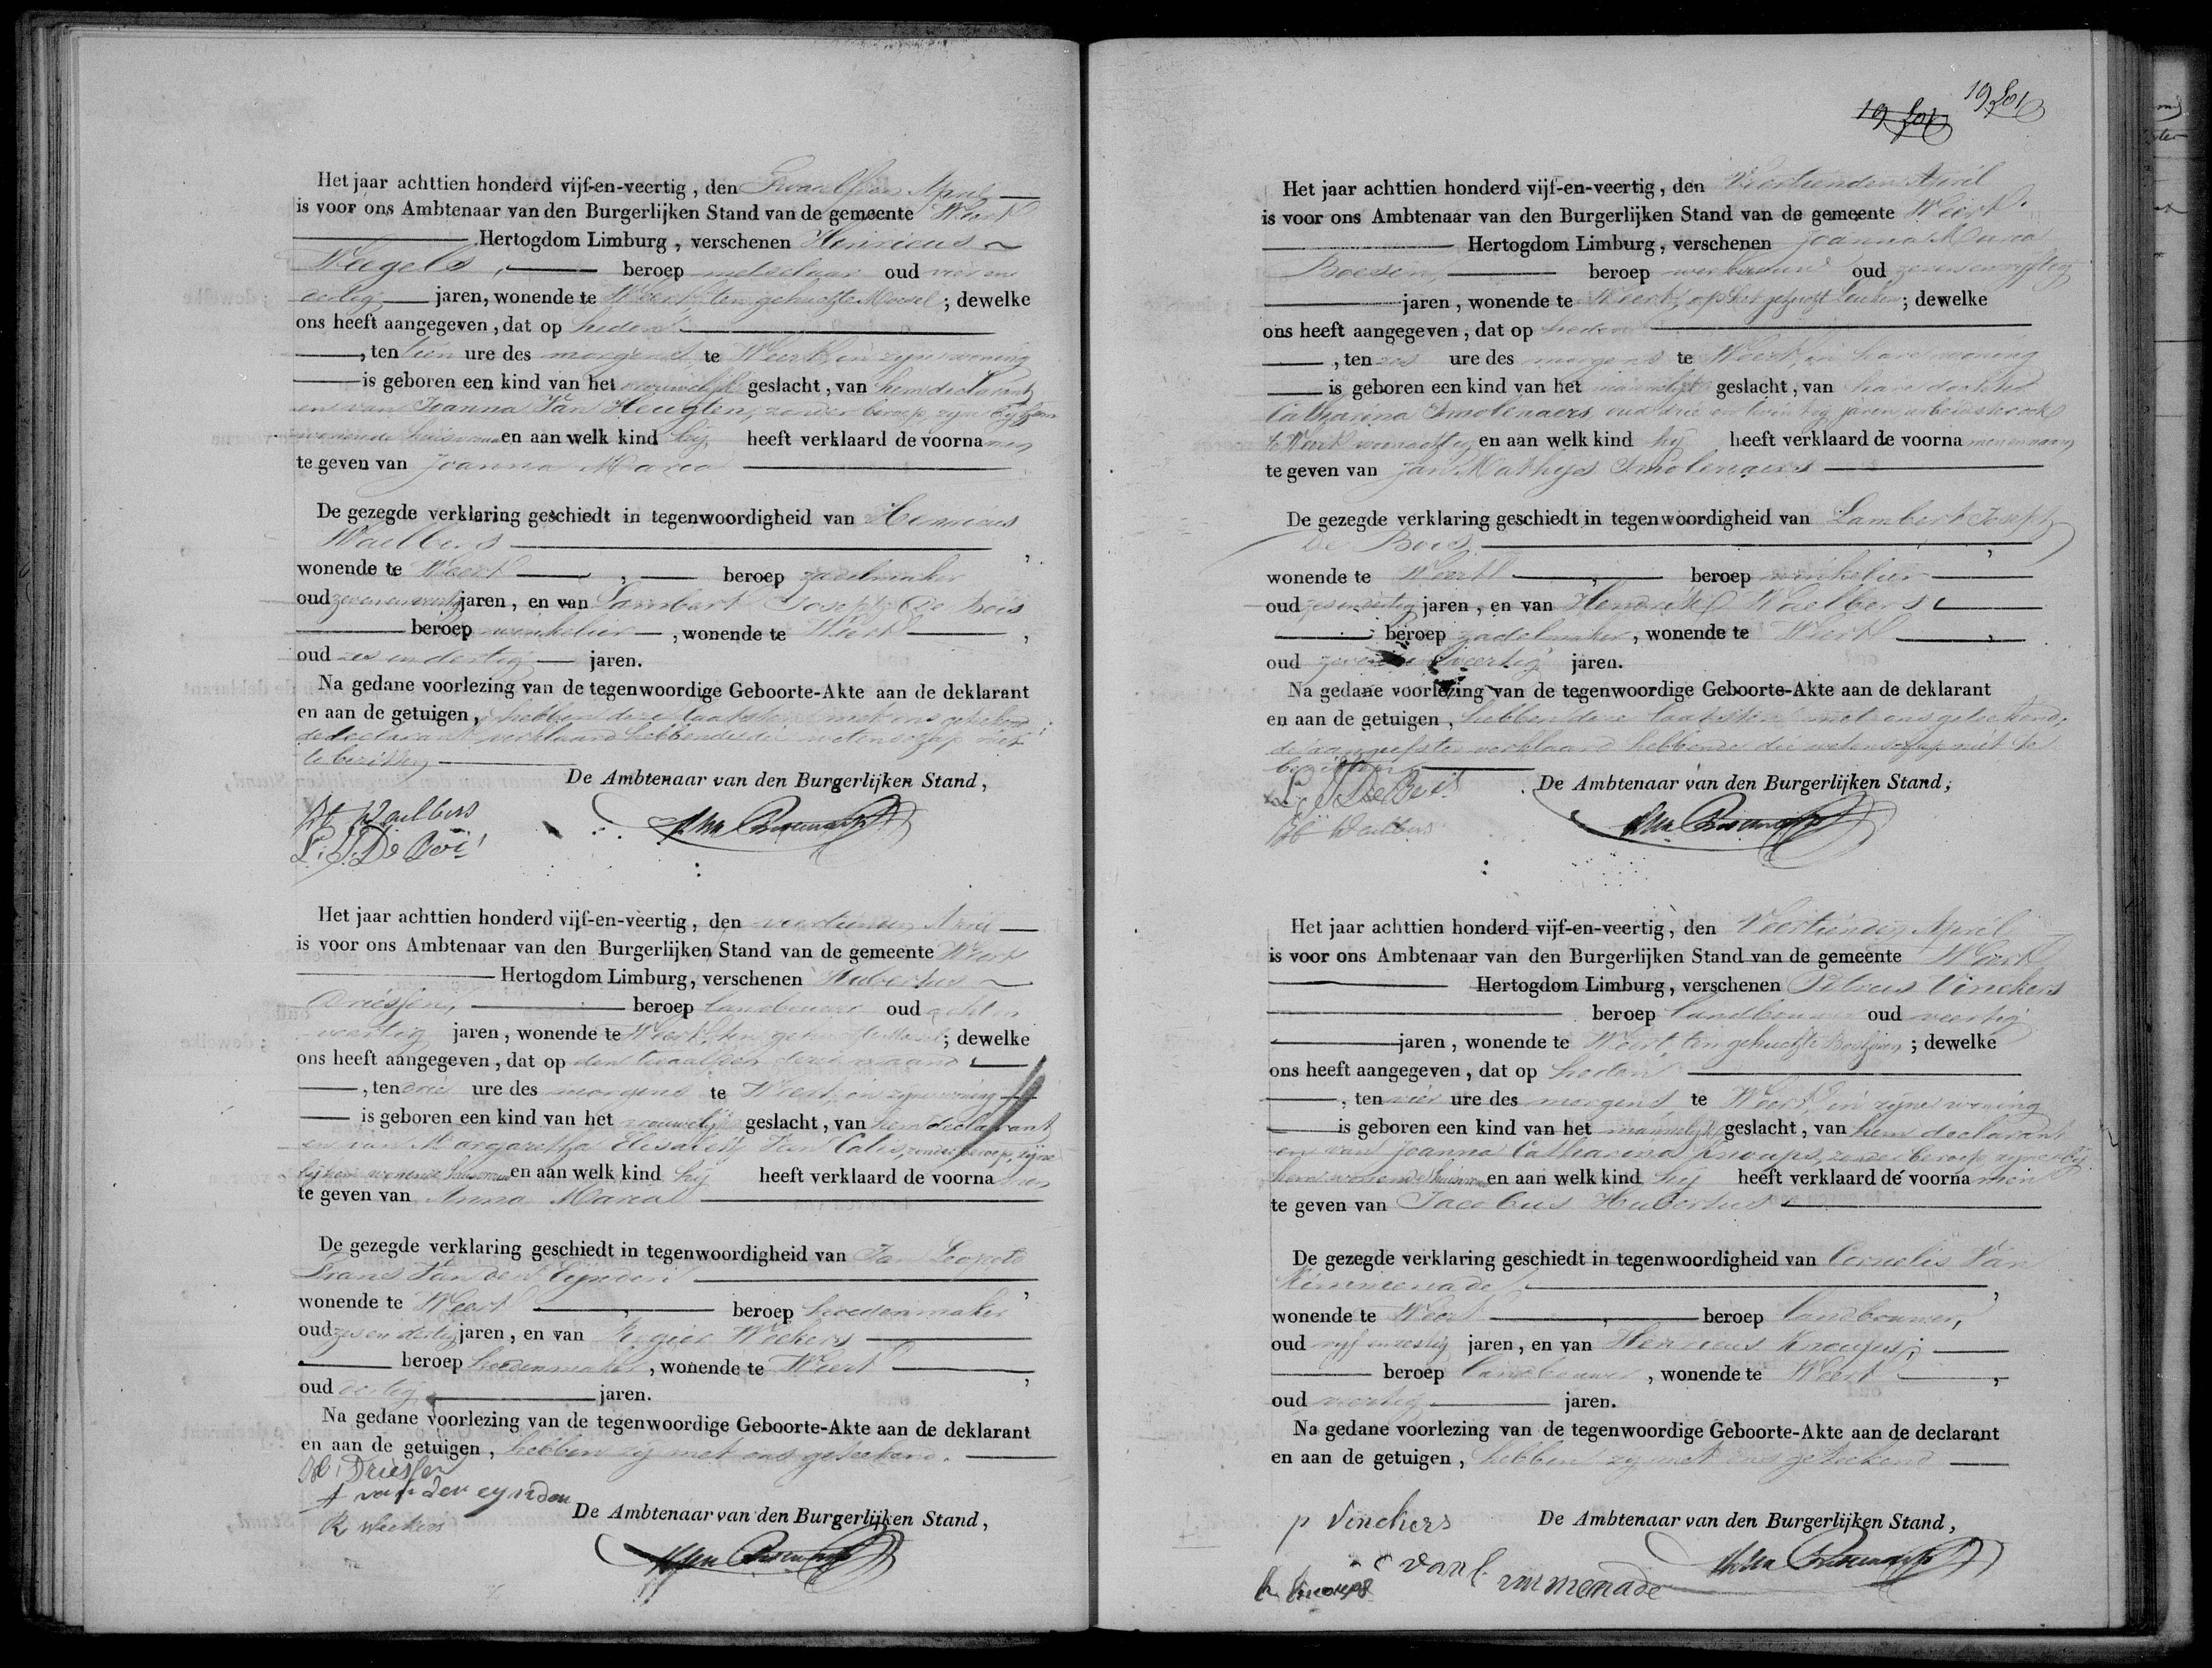 Het jaar achttien honderd vijf-en-veertig, den Twaalfden April
is voor ons Ambtenaar van den Burgerlijken Stand van de gemeente Weert
Hertogdom Limburg, verschenen Henricus
Weegels, beroep metselaar oud vier en
dertig jaren, wonende te Weert, ten gehuchte Moesel; dewelke
ons heeft aangegeven, dat op heden
, ten tien ure des morgens te Weert in zijne woning
is geboren een kind van het vrouwelijk geslacht, van hem declarant
en van Joanna Van Heugten, zonder beroep, zijne bij hem
wonende huisvrouw en aan welk kind hij heeft verklaard de voornamen
te geven van Joanna Maria
De gezegde verklaring geschiedt in tegenwoordigheid van Henricus
Waelbers,
wonende te Weert, beroep zadelmaker
oud zeven en veertig jaren, en van Lambert Joseph De Bois
beroep winkelier, wonende te Weert,
oud zes en dertig jaren.
Na gedane voorlezing van de tegenwoordige Geboorte-Akte aan de deklarant
en aan de getuigen, hebben deze laatsten met ons geteekend;
de declarant verklaard hebbende die wetenschap niet
te bezitten
De Ambtenaar van den Burgerlijken Stand,
H Waelbers
L. J. De Boi
Het jaar achttien honderd vijf-en-veertig, den veertienden April
is voor ons Ambtenaar van den Burgerlijken Stand van de gemeente Weert
Hertogdom Limburg, verschenen Hubertus
Driessen, beroep landbouwer oud acht en
veertig jaren, wonende te Weert, ten gehuchte; dewelke
ons heeft aangegeven, dat op den twaalfden dezer maand
, ten drie ure des morgens te Weert, in zijne woning
is geboren een kind van het vrouwelijk geslacht, van hem declarant
en van Margaretha Elisabeth Van Calis, zonder beroep, zijne
bij hem wonende huisvrouw en aan welk kind hij heeft verklaard de voornamen
te geven van Anna Maria
De gezegde verklaring geschiedt in tegenwoordigheid van Jan Leopold
Frans Van den Eijnden,
wonende te Weert, beroep hoedenmaker
oud zes en dertig jaren, en van Rogier Weekers
beroep hoedenmaker, wonende te Weert,
oud dertig jaren.
Na gedane voorlezing van de tegenwoordige Geboorte-Akte aan de deklarant
en aan de getuigen, hebben zij met ons geteekend.
H. Driessen
f van den eynden
De Ambtenaar van den Burgerlijken Stand,
R Weekers
19 
19 
Het jaar achttien honderd vijf-en-veertig, den Veertienden April
is voor ons Ambtenaar van den Burgerlijken Stand van de gemeente Weert
Hertogdom Limburg, verschenen Joanna Maria
Boesen, beroep werkvrouw oud zeven en vijftig
jaren, wonende te Weert, op het gehucht Leuken; dewelke
ons heeft aangegeven, dat op heden
, ten zes ure des morgens te Weert, in hare woning
is geboren een kind van het mannelijk geslacht, van hare dochter
Catharina Smolenaers, oud drie en twintig jaren, arbeidster ook
te Weert woonachtig en aan welk kind hij heeft verklaard de voornamen en naam
te geven van Jan Mathijs Smolenaers
De gezegde verklaring geschiedt in tegenwoordigheid van Lambert Joseph
De Bois,
wonende te Weert, beroep winkelier
oud zes en dertig jaren, en van Hendrik Waelbers
beroep zadelmaker, wonende te Weert,
oud zeven en veertig jaren.
Na gedane voorlezing van de tegenwoordige Geboorte-Akte aan de deklarant
en aan de getuigen, hebben deze laatsten met ons geteekend,
de aangeefster verklaard hebbende die wetenschap niet te
bezitten
De Ambtenaar van den Burgerlijken Stand,
L. J. De Bois
H Waelbers
Het jaar achttien honderd vijf-en-veertig, den Veertienden April
is voor ons Ambtenaar van den Burgerlijken Stand van de gemeente Weert
Hertogdom Limburg, verschenen Petrus Vinckers
beroep landbouwer oud veertig
jaren, wonende te Weert, ten gehuchte; dewelke
ons heeft aangegeven, dat op heden
, ten vier ure des morgens te Weert, in zijne woning
is geboren een kind van het mannelijk geslacht, van hem declarant
en van Joanna Catharina Knoups, zonder beroep, zijne bij
hem wonende huisvrouw en aan welk kind hij heeft verklaard de voornamen
te geven van Jacobus Hubertus
De gezegde verklaring geschiedt in tegenwoordigheid van Cornelis Van
Kimmenade,
wonende te Weert, beroep landbouwer,
oud vijf en zestig jaren, en van Henricus Knoups,
beroep landbouwer, wonende te Weert,
oud veertig jaren.
Na gedane voorlezing van de tegenwoordige Geboorte-Akte aan de declarant
en aan de getuigen, hebben zij met ons geteekend
p Vinckers
De Ambtenaar van den Burgerlijken Stand,
c van kimmenade
h knoups